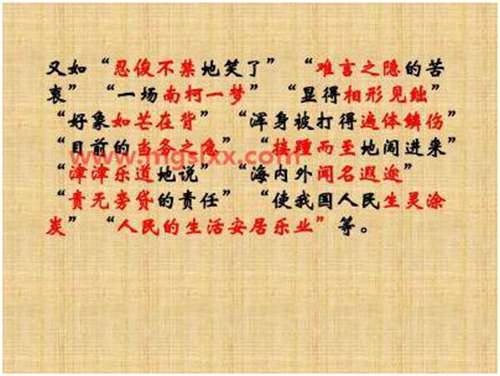 又如“忍俊不禁地笑了” “难言之隐的苦
衷” “一场南柯一梦” “显得相形见绌”
“好象如芒在背” “浑身被打得遍体鳞伤”
“目前的当务之急” “接踵而至地闯进来”
“津津乐道地说” “海内外闻名遐迩”
“责无旁贷的责任” “使我国人民生灵涂
炭” “人民的生活安居乐业”等。